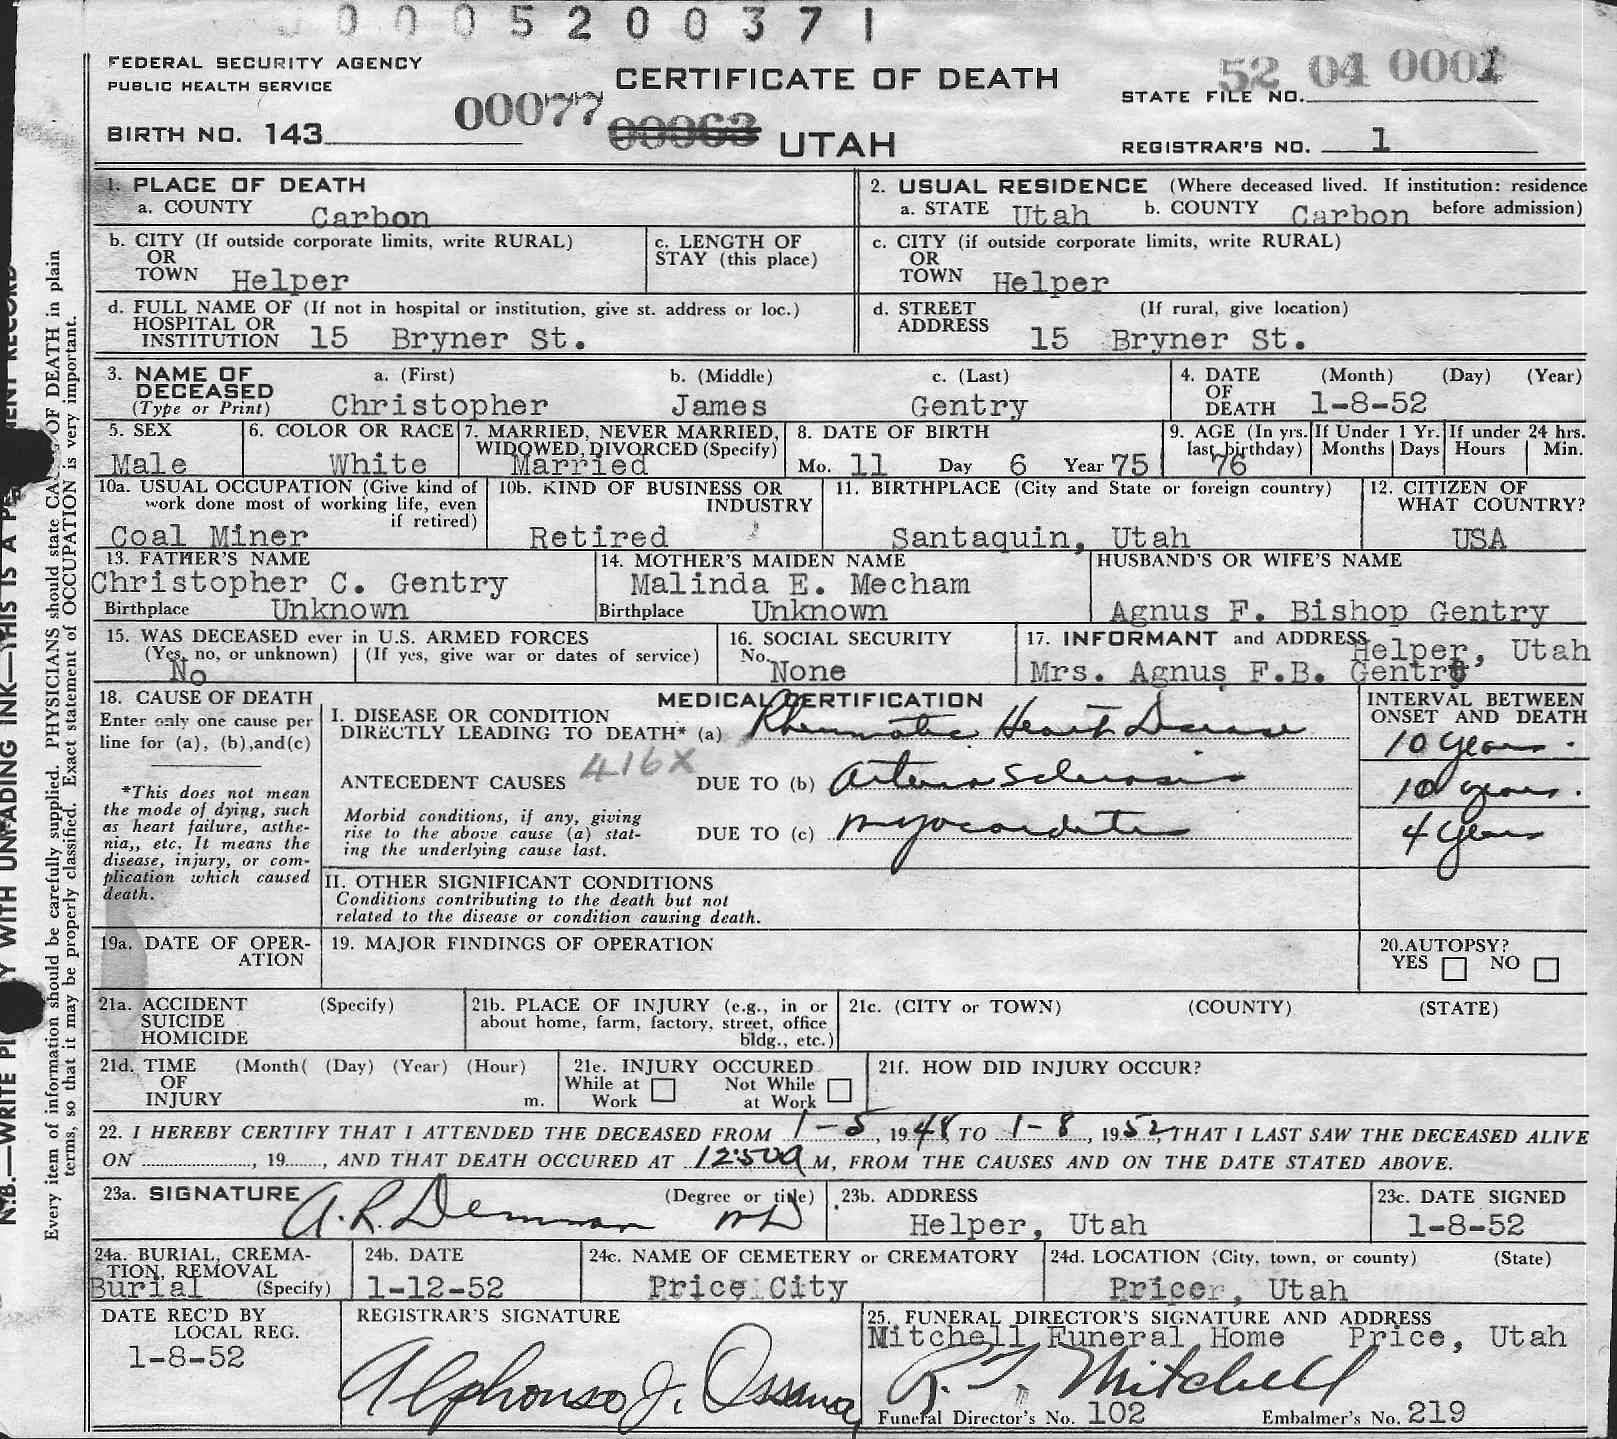 0 0 0 5 2 0 0 3 7 1
FEDERAL SECURITY AGENCY
PUBLIC HEALTH SERVICE
CERTIFICATE OF DEATH
52 04 0001
STATE FILE NO.
BIRTH NO. 143
00077 00063 UTAH
REGISTRAR'S NO. 1
1. PLACE OF DEATH
a. COUNTY Carbon
2. USUAL RESIDENCE (Where deceased lived. If institution: residence before admission)
a. STATE Utah b. COUNTY Carbon
b. CITY (If outside corporate limits, write RURAL)
OR
TOWN Helper
c. LENGTH OF
STAY (this place)
c. CITY (if outside corporate limits, write RURAL)
OR
TOWN Helper
d. FULL NAME OF (If not in hospital or institution, give st. address or loc.)
HOSPITAL OR
INSTITUTION 15 Bryner St.
d. STREET (If rural, give location)
ADDRESS 15 Bryner St.
3. NAME OF
DECEASED
(Type or Print)
a. (First) b. (Middle) c. (Last)
Christopher James Gentry
4. DATE (Month) (Day) (Year)
OF
DEATH 1-8-52
5. SEX
Male
6. COLOR OR RACE
White
7. MARRIED, NEVER MARRIED,
WIDOWED, DIVORCED (Specify)
Married
8. DATE OF BIRTH
Mo. 11 Day 6 Year 75
9. AGE (In yrs.
last birthday)
76
If Under 1 Yr.
Months Days
If under 24 hrs.
Hours Min.
10a. USUAL OCCUPATION (Give kind of
work done most of working life, even
if retired)
Coal Miner
10b. KIND OF BUSINESS OR
INDUSTRY
Retired
11. BIRTHPLACE (City and State or foreign country)
Santaquin, Utah
12. CITIZEN OF
WHAT COUNTRY?
USA
13. FATHER'S NAME
Christopher C. Gentry
Birthplace Unknown
14. MOTHER'S MAIDEN NAME
Malinda E. Mecham
Birthplace Unknown
HUSBAND'S OR WIFE'S NAME
Agnus F. Bishop Gentry
15. WAS DECEASED ever in U.S. ARMED FORCES
(Yes, no, or unknown) (If yes, give war or dates of service)
No
16. SOCIAL SECURITY
No. None
17. INFORMANT and ADDRESS Helper, Utah
Mrs. Agnus F.B. Gentry
18. CAUSE OF DEATH
Enter only one cause per
line for (a), (b),and(c)
*This does not mean
the mode of dying, such
as heart failure, asthe-
nia,, etc. It means the
disease, injury, or com-
plication which caused
death.
MEDICAL CERTIFICATION
I. DISEASE OR CONDITION
DIRECTLY LEADING TO DEATH* (a) Rheumatic Heart Disease
ANTECEDENT CAUSES 416X DUE TO (b) Arterio Sclerosis
Morbid conditions, if any, giving
rise to the above cause (a) stat-
ing the underlying cause last.
DUE TO (c) Myocarditis
INTERVAL BETWEEN
ONSET AND DEATH
10 years.
10 years.
4 years
II. OTHER SIGNIFICANT CONDITIONS
Conditions contributing to the death but not
related to the disease or condition causing death.
19a. DATE OF OPER-
ATION
19. MAJOR FINDINGS OF OPERATION
20.AUTOPSY?
YES NO
21a. ACCIDENT (Specify)
SUICIDE
HOMICIDE
21b. PLACE OF INJURY (e.g., in or
about home, farm, factory, street, office
bldg., etc.)
21c. (CITY or TOWN) (COUNTY) (STATE)
21d. TIME (Month( (Day) (Year) (Hour)
OF
INJURY m.
21e. INJURY OCCURED
While at Work Not While at Work
21f. HOW DID INJURY OCCUR?
22. I HEREBY CERTIFY THAT I ATTENDED THE DECEASED FROM 1-5, 1948, TO 1-8, 1952, THAT I LAST SAW THE DECEASED ALIVE
ON , 19 , AND THAT DEATH OCCURED AT 12:50a M, FROM THE CAUSES AND ON THE DATE STATED ABOVE.
23a. SIGNATURE (Degree or title)
A.R. Demman MD
23b. ADDRESS
Helper, Utah
23c. DATE SIGNED
1-8-52
24a. BURIAL, CREMA-
TION, REMOVAL
Burial (Specify)
24b. DATE
1-12-52
24c. NAME OF CEMETERY or CREMATORY
Price City
24d. LOCATION (City, town, or county) (State)
Pricer, Utah
DATE REC'D BY
LOCAL REG.
1-8-52
REGISTRAR'S SIGNATURE
Alphonso J.
25. FUNERAL DIRECTOR'S SIGNATURE AND ADDRESS
Mitchell Funeral Home Price, Utah
R. T. Mitchell
Funeral Director's No. 102 Embalmer's No. 219
Every item of information should be carefully supplied. PHYSICIANS should state OF DEATH in plain
terms, so that it may be properly classified. Exact statement of OCCUPATION is very important.
N.B.—WRITE WITH UNFADING INK—THIS IS A RECORD